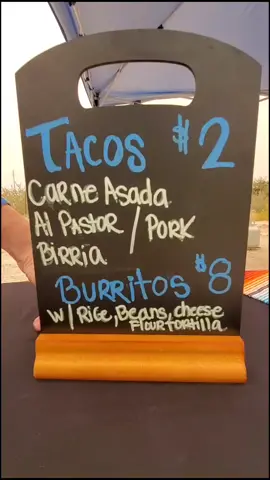 Tacos $2
Carne Asada
Al Pastor / Pork
Birria
Burritos $8
w/ Rice, Beans, cheese
Flour tortilla